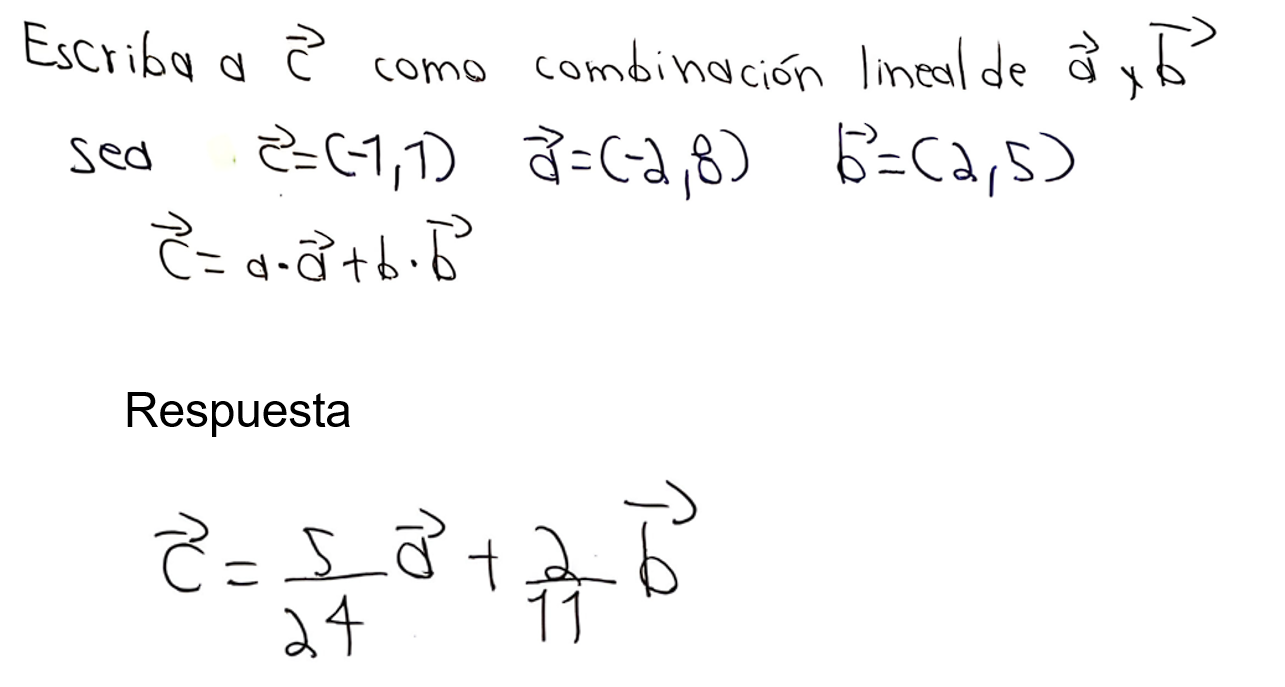 Escriba a c⃗ como combinación lineal de a⃗ y b⃗
sea c⃗=(-1,1) a⃗=(-2,8) b⃗=(2,5)
c⃗=a·a⃗+b·b⃗
Respuesta
c⃗=5/24 a⃗+2/11 b⃗